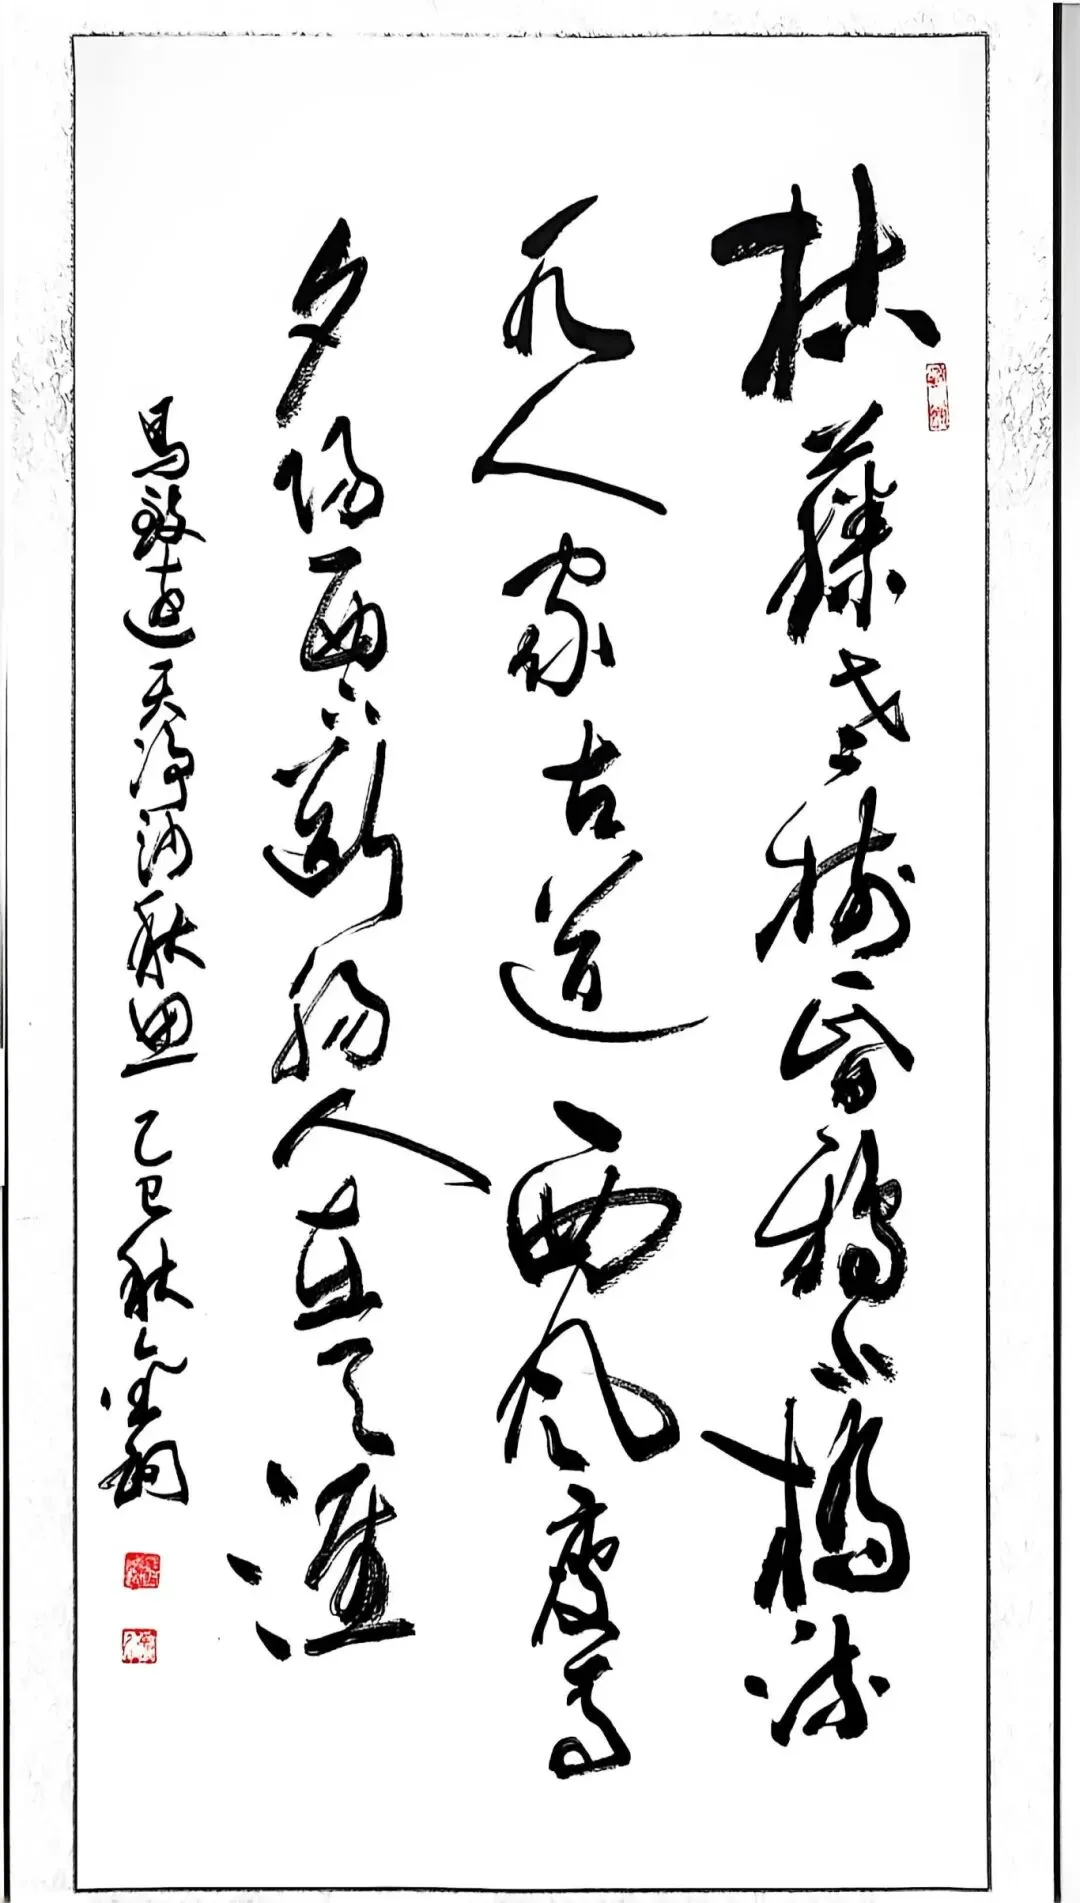 枯藤老樹昏鴉小橋流
水人家古道西風瘦馬
夕陽西下斷腸人在天涯
馬致遠天淨沙秋思 乙巳秋